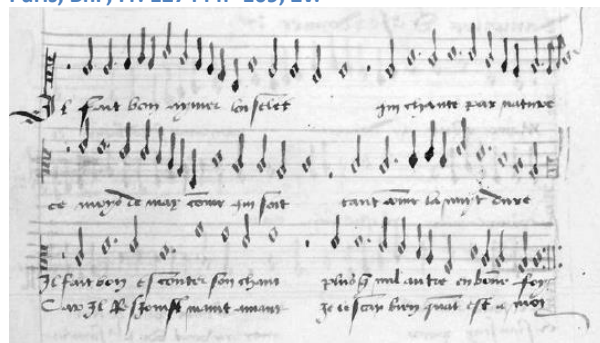 Paris, BnF, Fr. 12744 f°
Il fait bon aymer loiselet qui chante par nature
ce moys de may comme qui soit tant comme la nuyt dure
Il fait bon escouter son chant plus que nul autre en bonne foy
Car Il Resjouist maint amant Je le scay bien quant est a moy